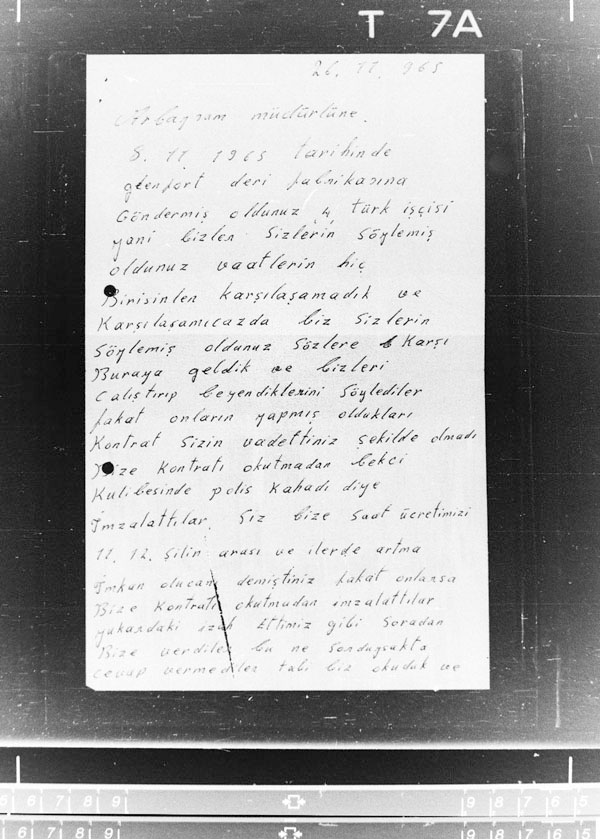 T 7A
26. 11. 965
müdürlüne.
8. 11 1965 tarihinde
glenfort deri fabrikasına
Göndermiş oldunuz "4" türk işçisi
yani bizler Sizlerin Söylemiş
oldunuz vaatlerin hiç
Birisinlen karşılaşamadık ve
Karşılaşamıcazda biz Sizlerin
Söylemiş oldunuz Sözlere Karşı
Buraya geldik ve bizleri
Çalıştırıp beyendiklerini Söylediler
fakat onların yapmış oldukları
Kontrat Sizin vadettiniz şekilde olmadı
Bize Kontratı okutmadan bekci
Kulibesinde polis Kahadı diye
İmzalattılar. Siz bize Saat ücretimizi
11. 12. Şilin arası ve ilerde artma
İmkan olucanı demiştiniz fakat onlarsa
Bize Kontratı okutmadan imzalattılar
yukardaki izah Ettimiz gibi Soradan
Bize verdiler bu ne Sorduysakta
cevap vermediler tabi biz okuduk ve
6 6 7 8 9 9 8 7 6 5
6 7 8 9 9 8 7 6 5